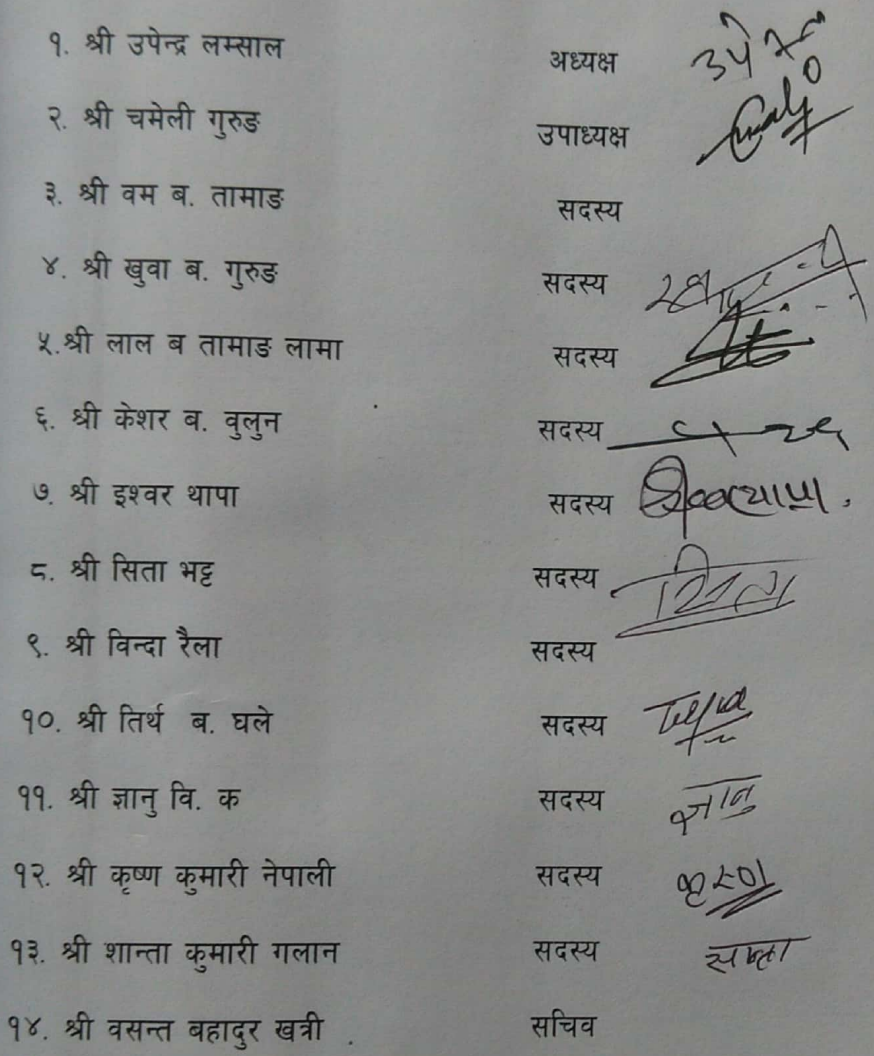 १. श्री उपेन्द्र लम्साल अध्यक्ष
२. श्री चमेली गुरुङ उपाध्यक्ष
३. श्री वम ब. तामाङ सदस्य
४. श्री खुवा ब. गुरुङ सदस्य
५.श्री लाल ब तामाङ लामा सदस्य
६. श्री केशर ब. वुलुन सदस्य
७. श्री इश्वर थापा सदस्य
८. श्री सिता भट्ट सदस्य सिता
९. श्री विन्दा रैला सदस्य
१०. श्री तिर्थ ब. घले सदस्य
११. श्री ज्ञानु वि. क सदस्य ज्ञानु
१२. श्री कृष्ण कुमारी नेपाली सदस्य
१३. श्री शान्ता कुमारी गलान सदस्य
१४. श्री वसन्त बहादुर खत्री . सचिव